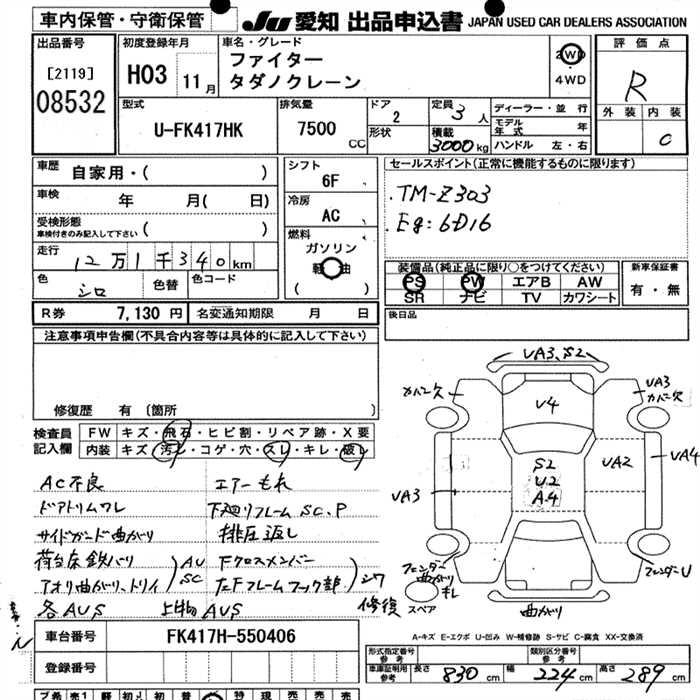 車内保管・守衛保管 JU 愛知 出品申込書 JAPAN USED CAR DEALERS ASSOCIATION
出品番号
[2119]
08532
初度登録年月
H03 11月
車名・グレード
ファイター
タダノクレーン
2WD
4WD
評価点
R
外装 内装
C
型式
U-FK417HK
排気量
7500 CC
ドア
2
形状
定員 3人
積載 3000kg
ディーラー・並行
モデル年式 年
ハンドル 左・右
車歴 自家用・( )
車検 年 月( 日)
受検形態
車検付きのみ記入して下さい ( )
走行 12万1千340km
色 シロ 色替 色コード
シフト
6F
冷房
AC
燃料
ガソリン
軽油
( )
セールスポイント(正常に機能するものに限ります)
・TM-Z303
・Eg:6D16
装備品(純正品に限り○をつけてください)
PS PW エアB AW
SR ナビ TV カワシート
新車保証書
有・無
R券 7,130円 名変通知期限 月 日
後日品
注意事項申告欄(不具合内容等は具体的に記入して下さい)
修復歴 有 〔箇所 〕
検査員記入欄
FW キズ・飛石・ヒビ割・リペア跡・X要
内装 キズ・汚レ・コゲ・穴・スレ・キレ・破レ
AC不良 エアーもれ
ドアトリムワレ 下廻りフレームSC、P
サイドガード曲がり 排圧返し
荷台床鉄バリ AU SC 下クロスメンバー
アオリ曲がり、トリイ 左Fフレームフック部 シワ
各AUS 上物AUS 修復
VA3、S2
カバー欠
V4
VA3
カバー欠
S2
U2
A4
UA2
VA4
VA3
フェンダー
曲がり
キレ
スペア
フェンダーU
曲がり
車台番号 FK417H-550406
登録番号
A-キズ E-エクボ U-凹み W-補修跡 S-サビ C-腐食 XX-交換済
形式指定番号 参考
類別区分番号 参考
車庫証明記入 参考 長さ 830cm 幅 224cm 高さ 289cm